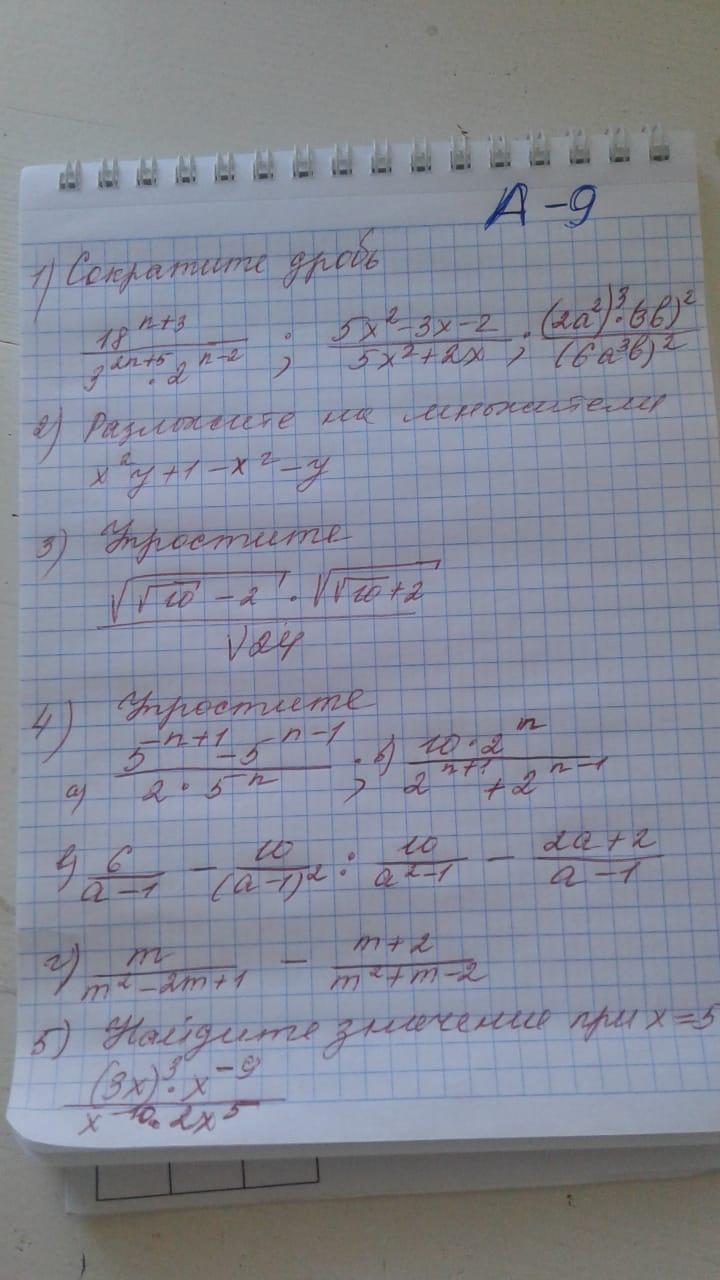 А-9
1) Сократите дробь
18^(n+3) / (3^(2n+5) · 2^(n-2)) ; (5x² - 3x - 2) / (5x² + 2x) ; ((2a²)³ · (3b)²) / (6a³b)²
2) Разложите на множители
x²y + 1 - x² - y
3) Упростите
(√(√10 - 2) · √(√10 + 2)) / √24
4) Упростите
а) (5^(n+1) - 5^(n-1)) / (2 · 5^n) ; б) (10 · 2^n) / (2^(n+1) + 2^(n-1))
в) 6 / (a-1) - 10 / (a-1)² : 10 / (a²-1) - (2a+2) / (a-1)
г) m / (m² - 2m + 1) - (m+2) / (m² + m - 2)
5) Найдите значение при x = 5
((3x)³ · x^(-9)) / (x^(-10) · 2x⁵)